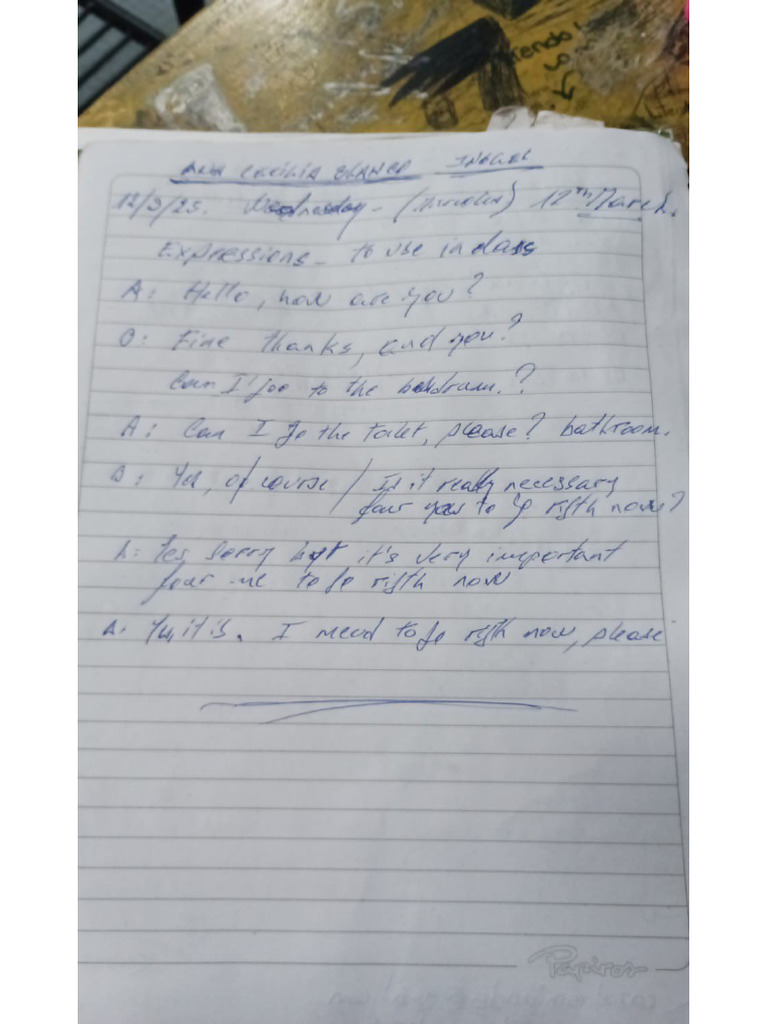 rendo
ANA CECILIA BLANCO INGLES
12/3/25. Wednesday - (miercoles) 12th March.
Expressions - to use in class
A: Hello, how are you?
O: Fine thanks, and you?
Can I goo to the
A: Can I go the toilet, please? bathroom.
B: Yes, of course / Is it really necessary
four you to go rigth now?
A: Yes sorry but it's very important
four me to go rigth now
A. Yes, it is. I meed to go rigth now, please
Papiros